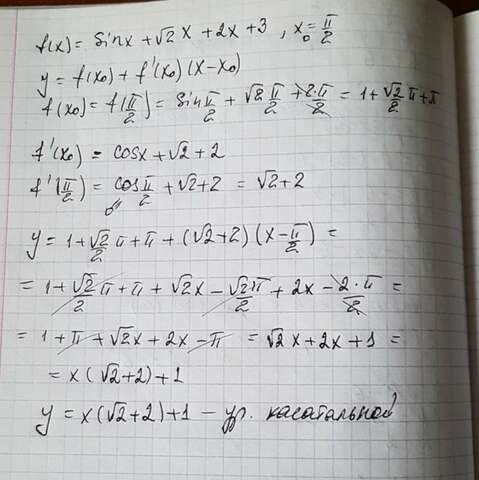 f(x) = sinx + √2 x + 2x + 3 , x₀ = π/2
y = f(x₀) + f'(x₀) (x - x₀)
f(x₀) = f(π/2) = sin π/2 + √2 π/2 + 2·π/2 = 1 + √2/2 π + π
f'(x₀) = cosx + √2 + 2
f'(π/2) = cos π/2 + √2 + 2 = √2 + 2
0
y = 1 + √2/2 π + π + (√2 + 2) (x - π/2) =
= 1 + √2/2 π + π + √2x - √2π/2 + 2x - 2·π/2 =
= 1 + π + √2x + 2x - π = √2x + 2x + 1 =
= x(√2 + 2) + 1
y = x(√2 + 2) + 1 - ур. касательной